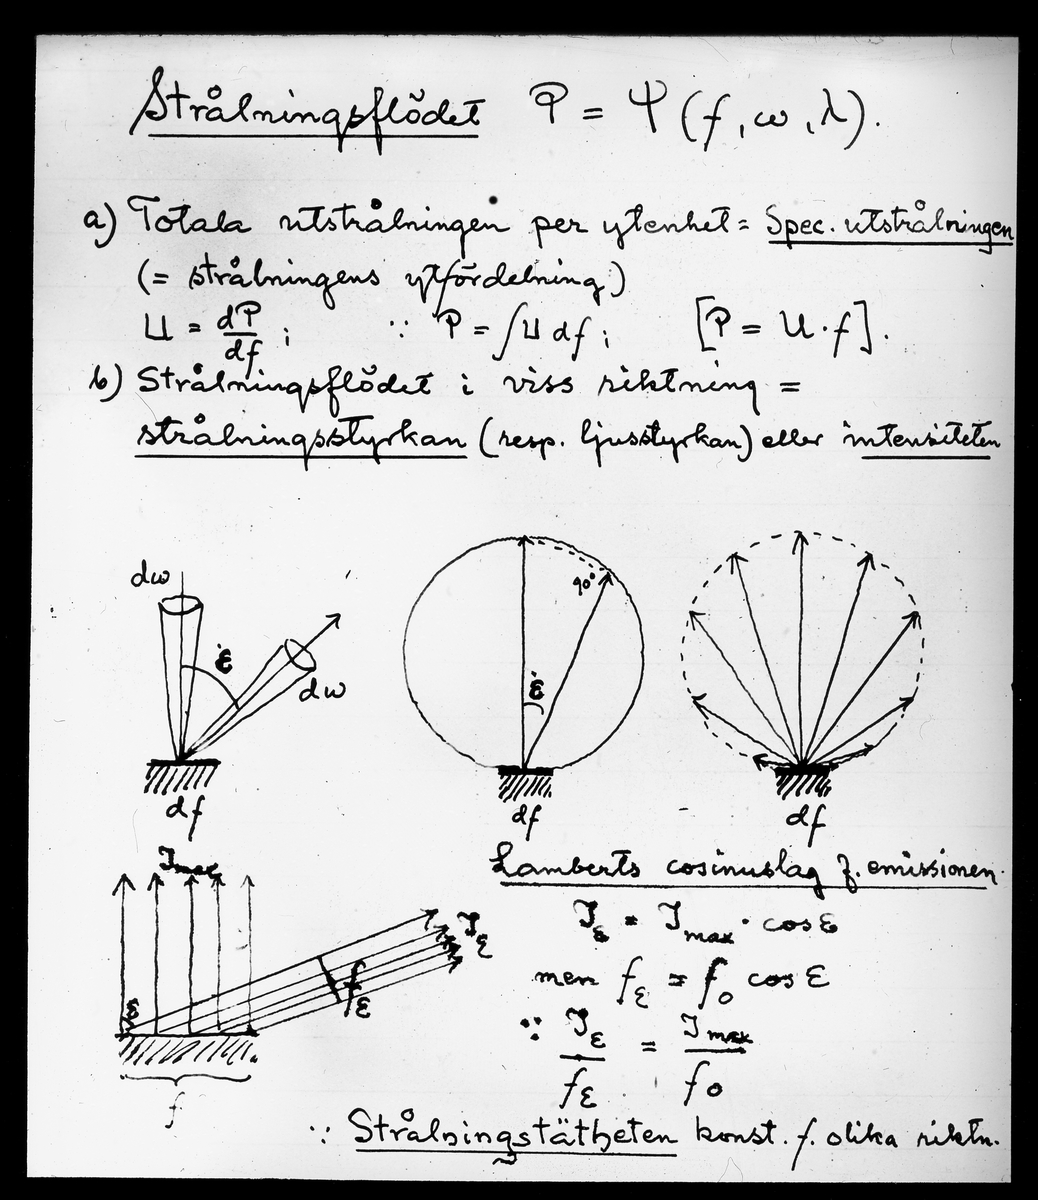 Strålningsflödet P = Ψ (f, ω, λ).
a) Totala utstrålningen per ytenhet = Spec. utstrålningen
(= strålningens ytfördelning)
U = dP/df ; ∵ P = ∫U df ; [P = U·f].
b) Strålningsflödet i viss riktning =
strålningsstyrkan (resp. ljusstyrkan) eller intensiteten
dω
90°
ε
dω
ε
df
df
df
Jmax
Lamberts cosinuslag f. emissionen.
Jε = Jmax · cos ε
Jε
men fε = f0 cos ε
fε
ε
∵ Jε/fε = Jmax/f0
f
∵ Strålningstätheten konst. f. olika riktn.